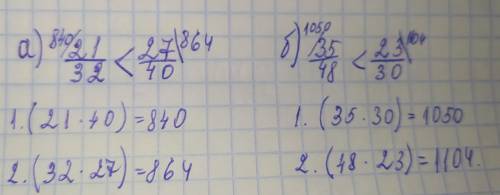 а) 840/ 21/32 < 27/40 \864
1. (21 · 40) = 840
2. (32 · 27) = 864
б) 1050/ 35/48 < 23/30 \1104
1. (35 · 30) = 1050
2. (48 · 23) = 1104.